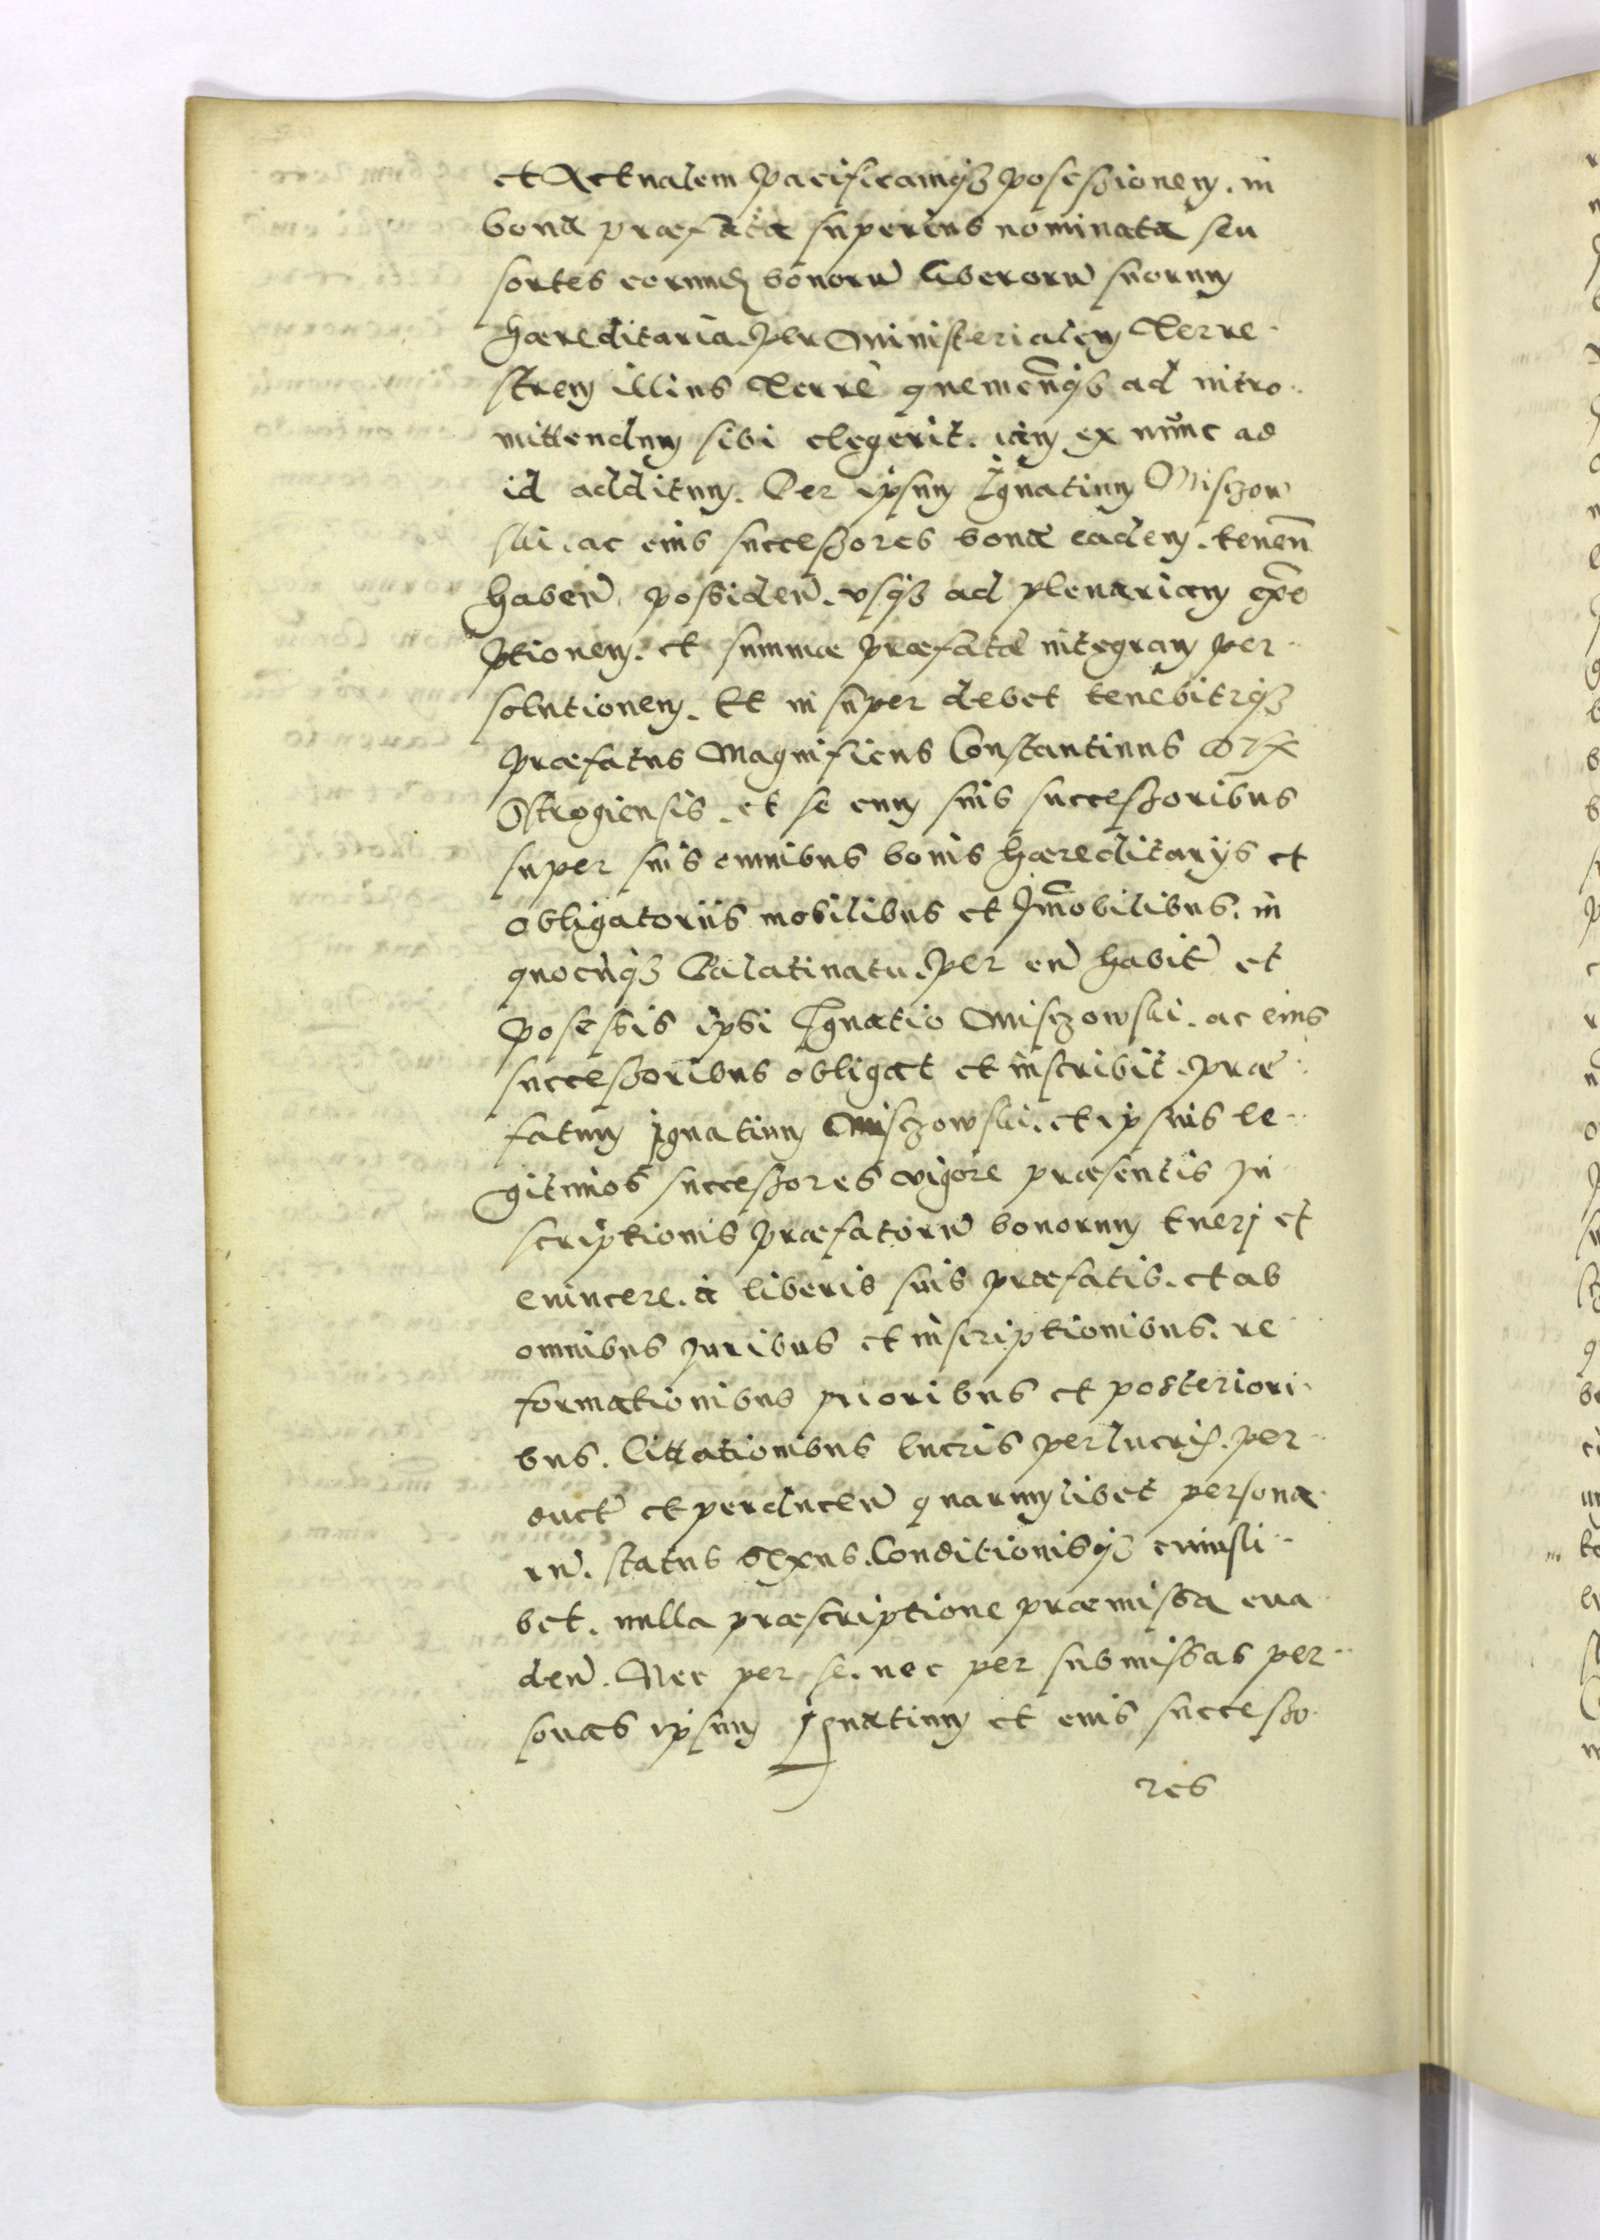 et Actualem pacificamq3 posessionem. in
bona præfata superius nominata seu
sortes eorund bonorū liberorū suorum
hæreditaria. per Ministerialem Terre
strem illius Terrȩ quemcūq3 ad intro
mittendum sibi elegerit. iam ex nunc ad
id additum. Per ipsum Ignatium Misczow
ski. ac eius successores bona eadem. tenen̄
haben̄ possiden̄. vsq3 ad plenariam exe
ptionem. et summæ præfatæ integram per
solutionem. Et in super debet tenebiturq3
præfatus Magnificus Constantinus
Ostrogiensis. et se cum suis successoribus
super suis omnibus bonis hæreditarijs et
obligatoriis mobilibus et Im̄obilibus. in
quocūq3 Palatinatu. per eū habit̄ et
posessis ipsi Ignatio Misczowski. ac eius
successoribus obligat et inscribit. præ
fatum Ignatium Misczowski. et ipsius le
gitimos successores vigore præsentis In
scriptionis præfatorū bonorum tuerj et
euincere. à liberis suis præfatis. et ab
omnibus Iuribus et inscriptionibus. re
formationibus prioribus et posteriori
bus. littationibus lucris perlucris. per
duct̄ et perducen̄ quarumlibet persona
rū. status sexus. Conditionisq3 cuiusli
bet. nulla præscriptione præmissa eua
den̄. Nec per se. nec per submissas per
sonas ipsum Ignatium et eius successo
res